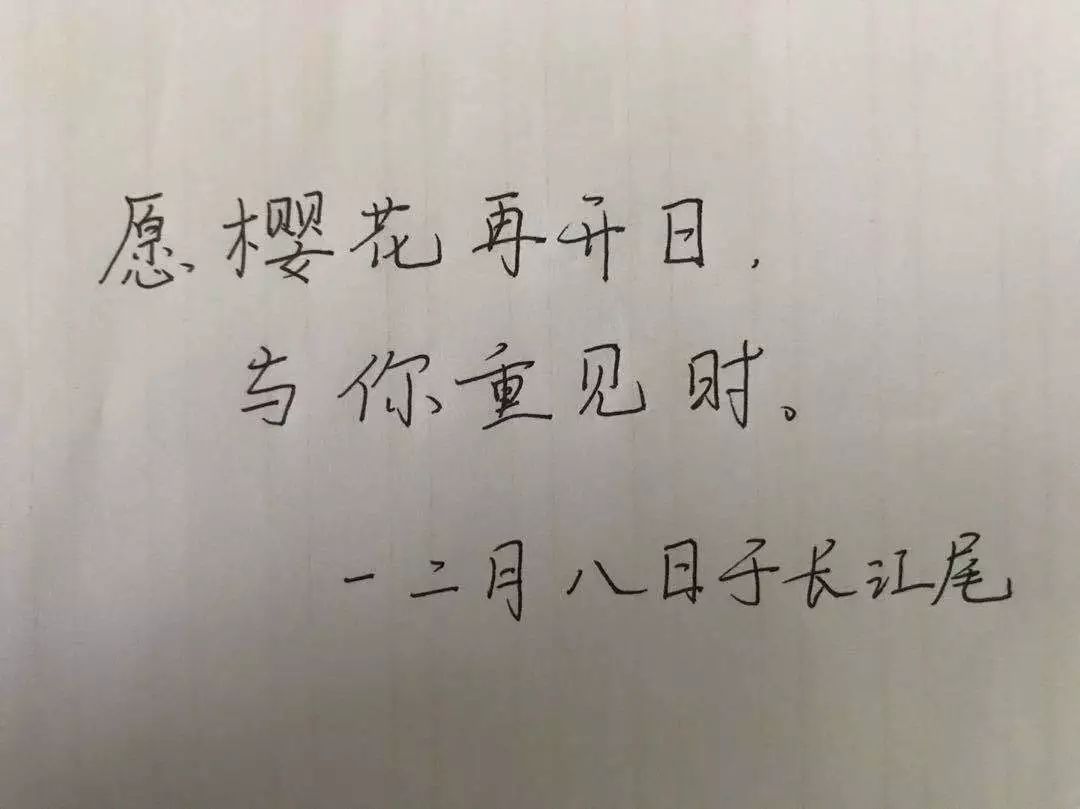 愿樱花再开日,
与你重见时。
一二月八日于长江尾